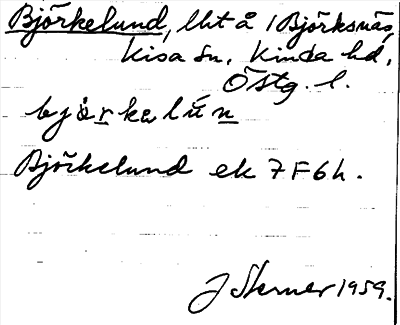 Björkelund, lht å 1 Björksnäs,
Kisa sn, Kinda hd,
Östg. l.
björkelún
Björkelund ek 7F6h.
J Sterner 1959.